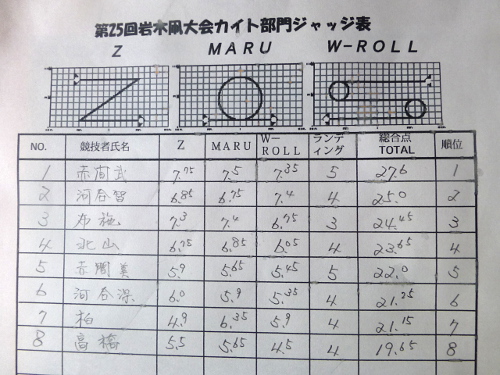 第25回岩木凧大会カイト部門ジャッジ表
Z MARU W-ROLL
NO. 競技者氏名 Z MARU W-ROLL ランディング 総合点 TOTAL 順位
1 赤間武 7.75 7.5 7.35 5 27.6 1
2 河合智 6.85 6.75 7.4 4 25.0 2
3 布施 7.3 7.4 6.75 3 24.45 3
4 北山 6.75 6.85 6.05 4 23.65 4
5 赤間美 5.9 5.65 5.45 5 22.0 5
6 河合深 6.0 5.9 5.35 4 21.25 6
7 柏 4.9 6.35 5.9 4 21.15 7
8 高橋 5.5 5.65 4.5 4 19.65 8